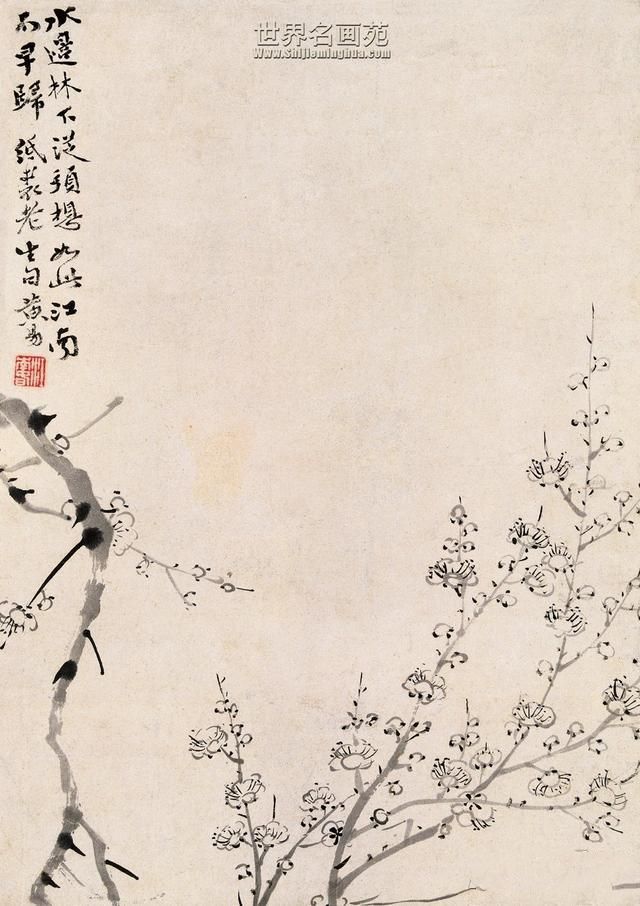 世界名画苑
www.Shijieminghua.com
水邊林下從頭想如此江南
不早歸 紙裘老生句